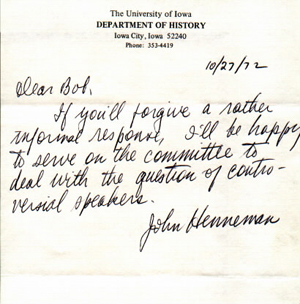 The University of Iowa
DEPARTMENT OF HISTORY
Iowa City, Iowa 52240
Phone: 353-4419
10/27/72
Dear Bob,
If you'll forgive a rather
informal response, I'll be happy
to serve on the committee to
deal with the question of contro-
versial speakers.
John Henneman